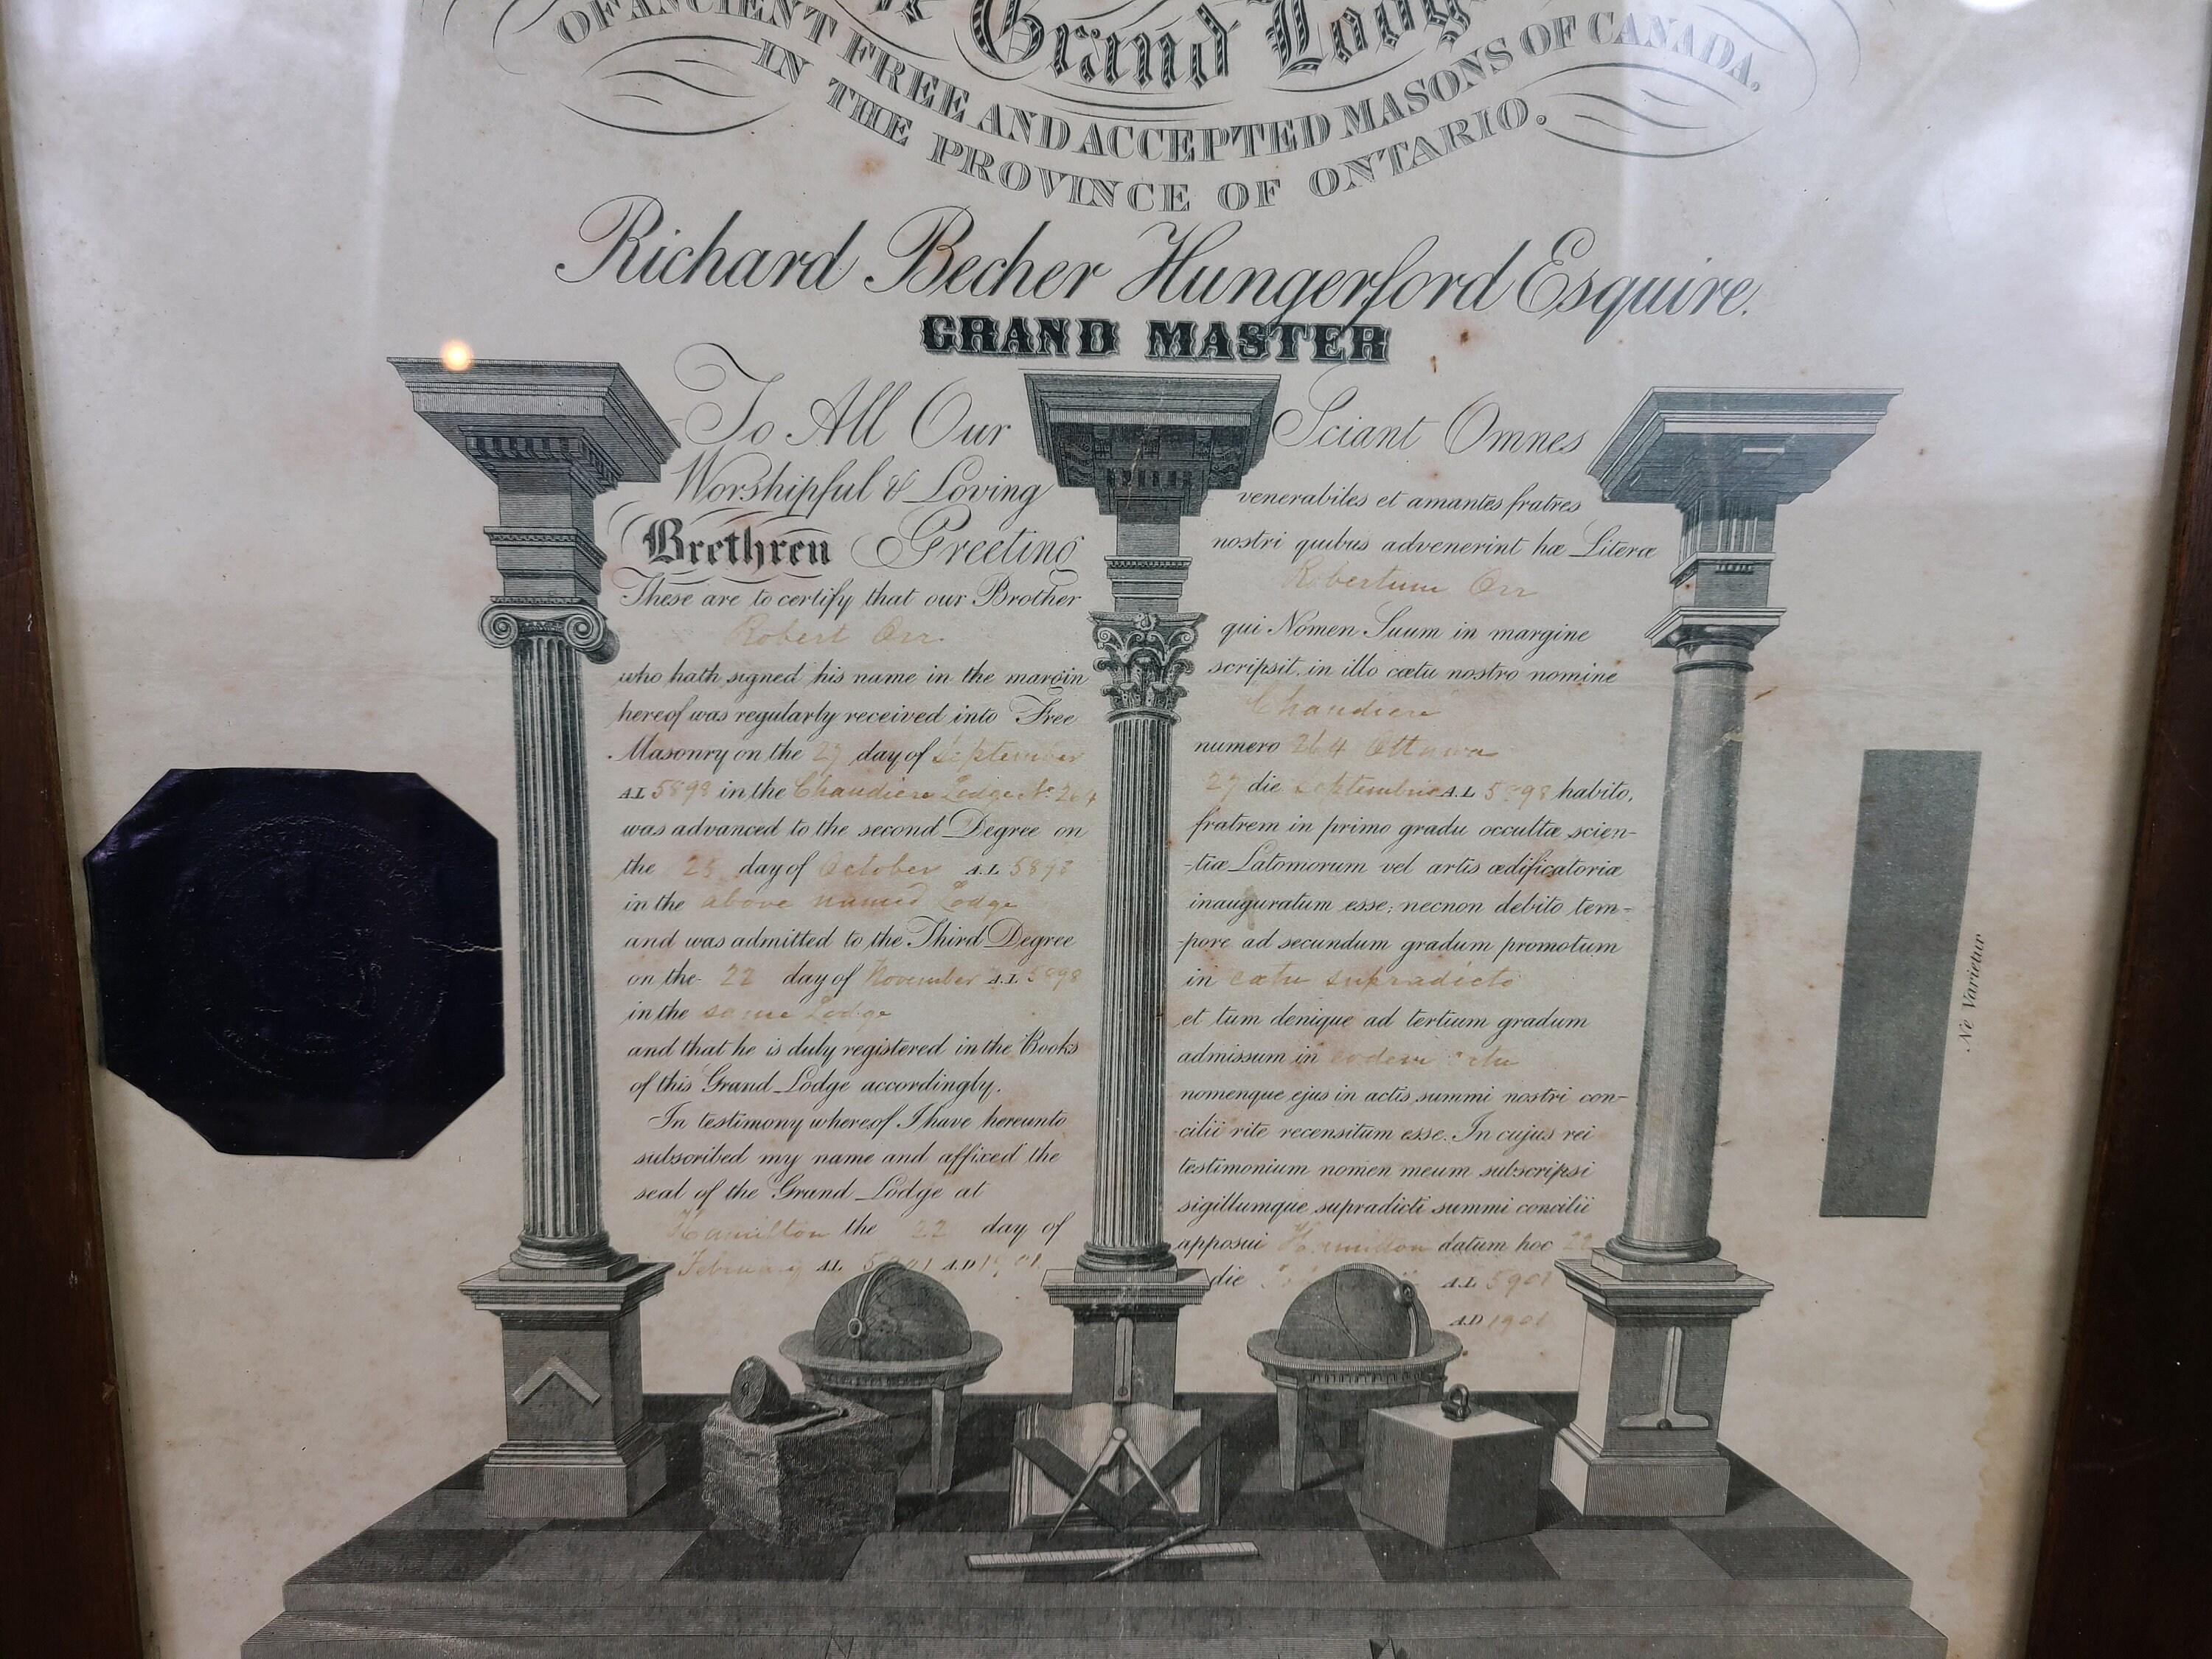 Grand Lodge
OF ANCIENT FREE AND ACCEPTED MASONS OF CANADA,
IN THE PROVINCE OF ONTARIO.
Richard Becher Hungerford Esquire.
GRAND MASTER
To All Our
Worshipful & Loving
Brethren Greeting
These are to certify that our Brother
Robert Orr.
who hath signed his name in the margin
hereof was regularly received into Free
Masonry on the 27 day of September
A.L 5898 in the Chaudiere Lodge No. 264
was advanced to the second Degree on
the 25 day of October A.L 5898
in the above named Lodge
and was admitted to the Third Degree
on the 22 day of November A.L 5898
in the same Lodge
and that he is duly registered in the Books
of this Grand Lodge accordingly.
In testimony whereof I have hereunto
subscribed my name and affixed the
seal of the Grand Lodge at
Hamilton the 22 day of
February A.L 5901 A.D 1901
Sciant Omnes
venerabiles et amantes fratres
nostri quibus advenerint hæ Literæ
Robertum Orr
qui Nomen Suum in margine
scripsit in illo cœtu nostro nomine
Chaudiere
numero 264 Ottawa
27 die Septembris A.L 5898 habito,
fratrem in primo gradu occultæ scien-
-tiæ Latomorum vel artis ædificatoriæ
inauguratum esse; necnon debito tem-
-pore ad secundum gradum promotum
in cœtu supradicto
et tum denique ad tertium gradum
admissum in eodem cœtu
nomenque ejus in actis summi nostri con-
-cilii rite recensitum esse. In cujus rei
testimonium nomen meum subscripsi
sigillumque supradicti summi concilii
apposui Hamilton datum hoc 22
die A.L 5901
A.D 1901
Ne Varietur